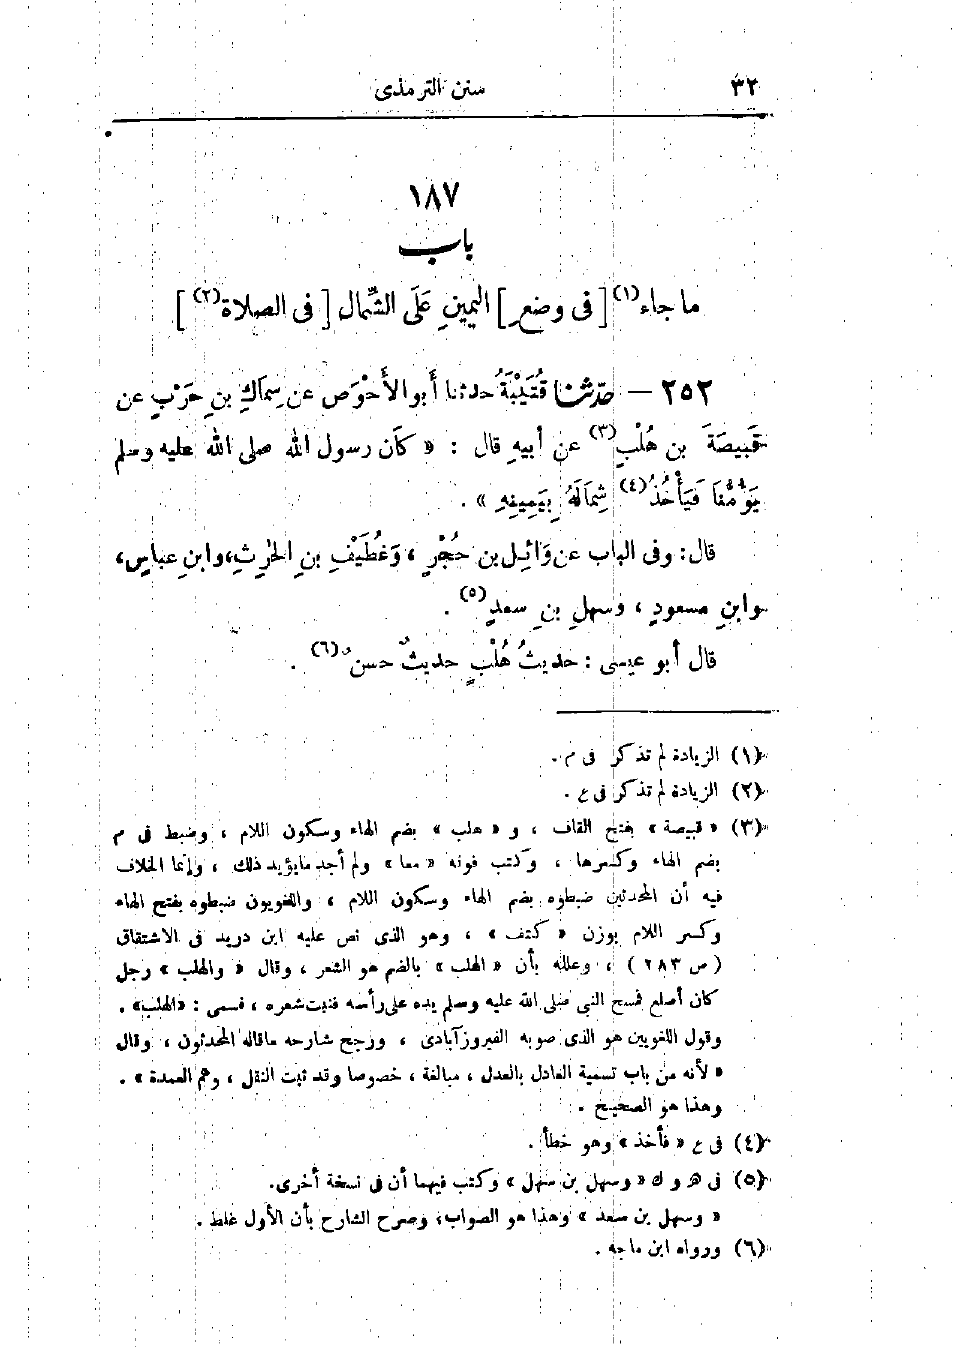 ٣٢ سنن الترمذى
١٨٧
باب
ما جاء(١) [فى وضعِ] اليمينِ عَلَى الشِّمالِ [فى الصلاة(٢)]
٢٥٢ — حدّثنا قُتَيْبَةُ حدثنا أبو الأَحْوَص عن سِمَاكِ بنِ حَرْبٍ عن
قَبِيصَةَ بن هُلْبٍ(٣) عن أبيهِ قال : « كان رسول الله صلى الله عليه وسلم
يَؤُمُّنَا فَيَأْخُذُ(٤) شِمَالَهُ بِيَمِينِهِ » .
قال : وفى الباب عن وَائِلِ بن حُجْرٍ ، وَغُطَيْفِ بنِ الحٰرِثِ ، وابنِ عباسٍ ،
وابنِ مسعودٍ ، وسهلِ بنِ سعدٍ(٥) .
قال أبو عيسى : حديثُ هُلْبٍ حديثٌ حسنٌ(٦) .
(١) الزيادة لم تذكر فى م .
(٢) الزيادة لم تذكر فى ع .
(٣) « قبيصة » بفتح القاف ، و « هلب » بضم الهاء وسكون اللام ، وضبط فى م
بضم الهاء وكسرها ، وكتب فوقه « معا » ولم أجد مايؤيد ذلك ، وإنما الخلاف
فيه أن المحدثين ضبطوه بضم الهاء وسكون اللام ، واللغويون ضبطوه بفتح الهاء
وكسر اللام بوزن « كتف » ، وهو الذى نص عليه ابن دريد فى الاشتقاق
( ص ٢٨٣ ) ، وعلله بأن « الهلب » بالضم هو الشعر ، وقال « والهلب » رجل
كان أصلع فمسح النبى صلى الله عليه وسلم يده على رأسه فنبت شعره ، فسمى : «الهلب» .
وقول اللغويين هو الذى صوبه الفيروزآبادى ، ورجح شارحه ماقاله المحدثون ، وقال
« لأنه من باب تسمية العادل بالعدل ، مبالغة ، خصوصا وقد ثبت النقل ، وهم العمدة » .
وهذا هو الصحيح .
(٤) فى ع « فأخذ » وهو خطأ .
(٥) فى هـ و ك « وسهل بن سهل » وكتب فيهما أن فى نسخة أخرى.
« وسهل بن سعد » وهذا هو الصواب، وصرح الشارح بأن الأول غلط .
(٦) ورواه ابن ماجه .